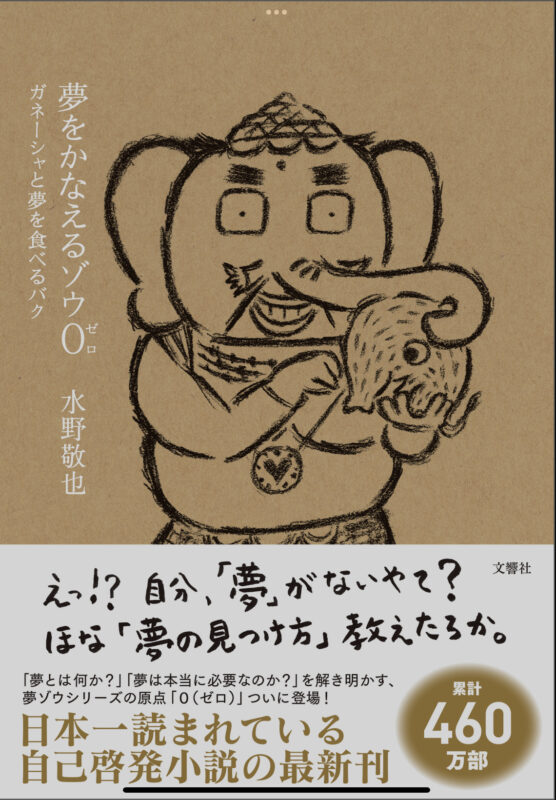 夢をかなえるゾウ0
ゼロ
ガネーシャと夢を食べるバク
水野敬也
文響社
えっ!? 自分、「夢」がないやて?
ほな「夢の見つけ方」教えたろか。
「夢とは何か?」「夢は本当に必要なのか?」を解き明かす、
夢ゾウシリーズの原点「0(ゼロ)」ついに登場!
日本一読まれている
自己啓発小説の最新刊
累計
460
万部